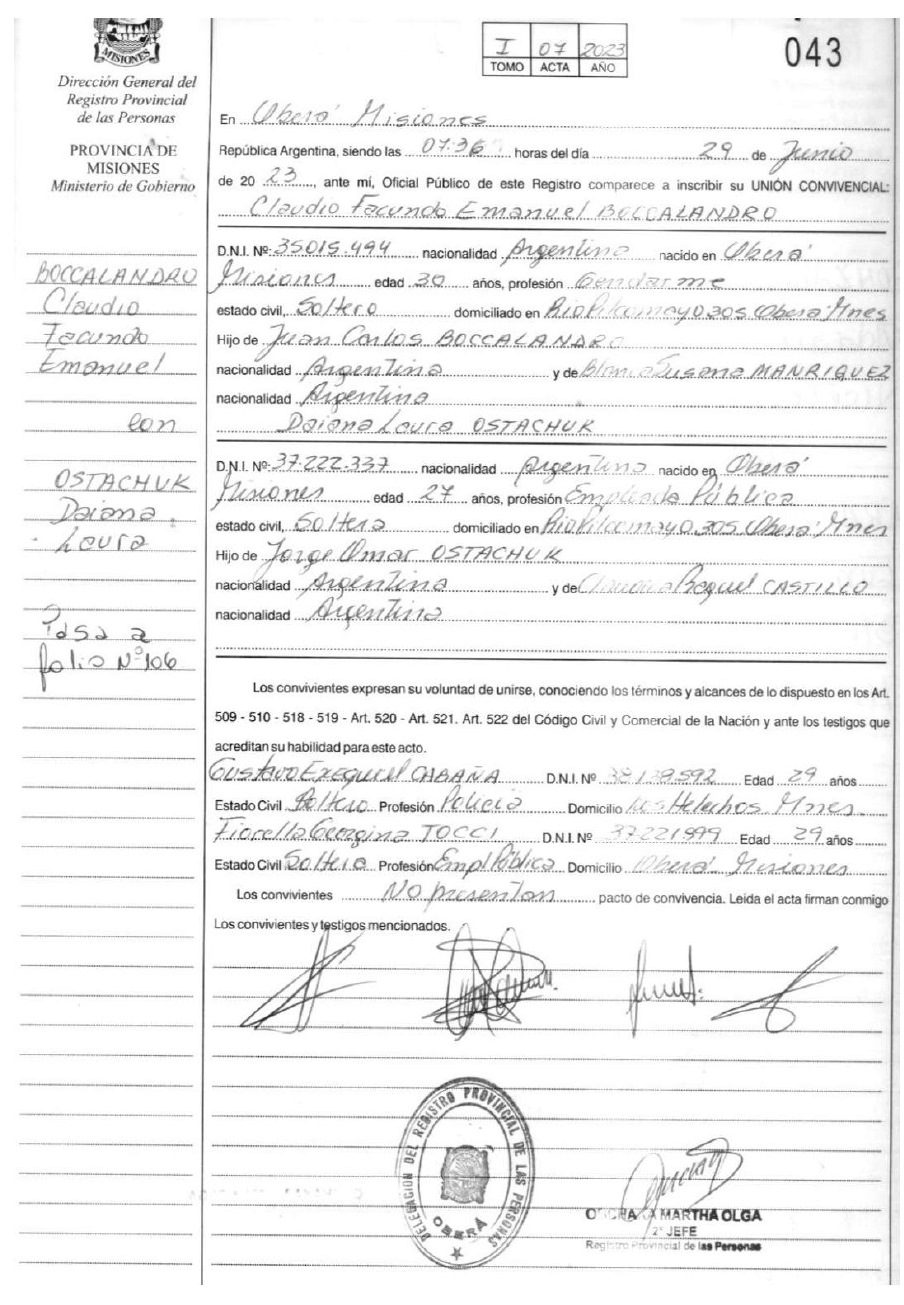 MISIONES
Dirección General del
Registro Provincial
de las Personas
PROVINCIA DE
MISIONES
Ministerio de Gobierno
BOCCALANDRO
Claudio
Facundo
Emanuel
con
OSTACHUK
Daiana
Laura
Pasa a
folio Nº106
I 07 2023
TOMO ACTA AÑO
043
En Oberá Misiones
República Argentina, siendo las 07:36 horas del día 29 de Junio
de 20 23, ante mí, Oficial Público de este Registro comparece a inscribir su UNIÓN CONVIVENCIAL:
Claudio Facundo Emanuel BOCCALANDRO
D.N.I. Nº 35015.494 nacionalidad Argentina nacido en Oberá
Misiones edad 30 años, profesión Gendarme
estado civil, Soltero domiciliado en Rio Pilcomayo 305 Oberá Mnes
Hijo de Juan Carlos BOCCALANDRO
nacionalidad Argentina y de Blanca Susana MANRIQUEZ
nacionalidad Argentina
Daiana Laura OSTACHUK
D.N.I. Nº 37.222.337 nacionalidad Argentina nacido en Oberá
Misiones edad 27 años, profesión Empleada Pública
estado civil, Soltera domiciliado en Rio Pilcomayo 305 Oberá Mnes
Hijo de Jorge Omar OSTACHUK
nacionalidad Argentina y de Raquel CASTILLO
nacionalidad Argentina
Los convivientes expresan su voluntad de unirse, conociendo los términos y alcances de lo dispuesto en los Art.
509 - 510 - 518 - 519 - Art. 520 - Art. 521. Art. 522 del Código Civil y Comercial de la Nación y ante los testigos que
acreditan su habilidad para este acto.
Gustavo Exequiel CABAÑA D.N.I. Nº Edad 29 años
Estado Civil Soltero Profesión Policía Domicilio Los Helechos Mnes
Fiorella Georgina TOCCI D.N.I. Nº Edad 29 años
Estado Civil Soltera Profesión Empl Pública Domicilio Oberá Misiones
Los convivientes No presentan pacto de convivencia. Leída el acta firman conmigo
Los convivientes y testigos mencionados.
DELEGACION DEL REGISTRO PROVINCIAL DE LAS PERSONAS
OBERÁ
MARTHA OLGA
2º JEFE
Registro Provincial de las Personas